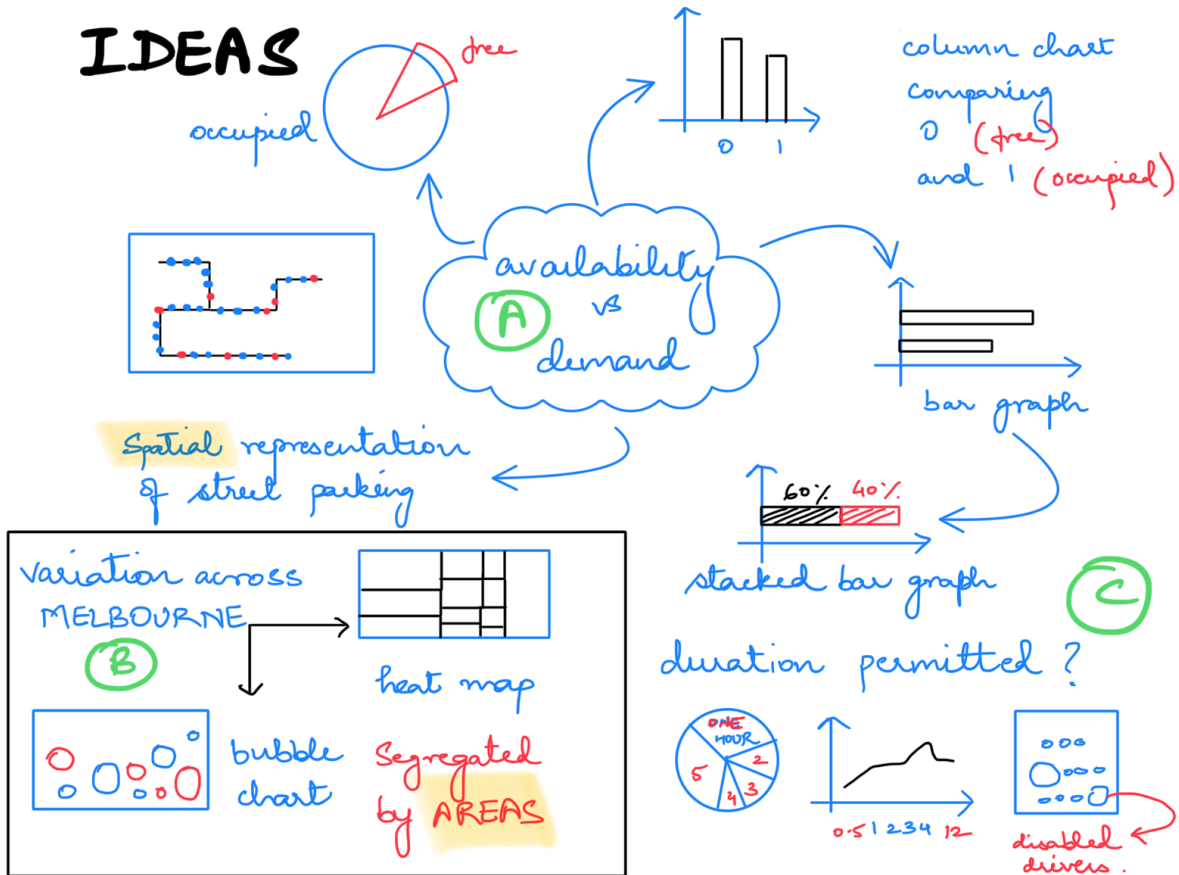 IDEAS
free
occupied
0 1
column chart
comparing
0 (free)
and 1 (occupied)
availability
A
vs
demand
bar graph
Spatial representation
of street parking
60% 40%
stacked bar graph
C
variation across
MELBOURNE
B
heat map
bubble
chart
Segregated
by AREAS
duration permitted ?
ONE
HOUR
2
3
4
5
0.5 1 2 3 4 12
disabled
drivers.